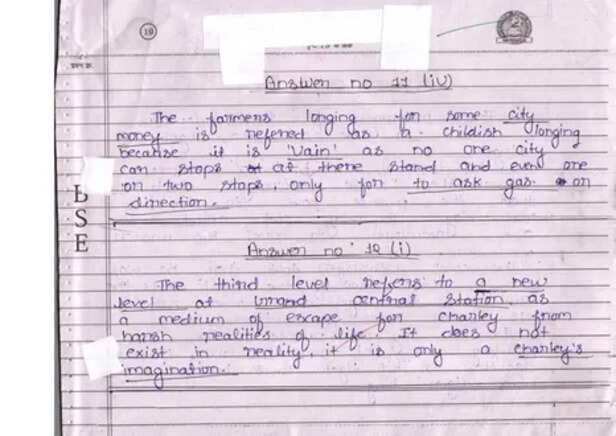 19
Answer no 11 (iv)
The farmers longing for some city
money is refered as a childish longing
because it is 'Vain' as no one city
can stops at there stand and even one
or two stops, only for to ask gas or
direction.
B
S
E
Answer no 12 (i)
The third level refers to a new
level at Grand central station as
a medium of escape for charley from
harsh realities of life. It does not
exist in reality, it is only a charley's
imagination.